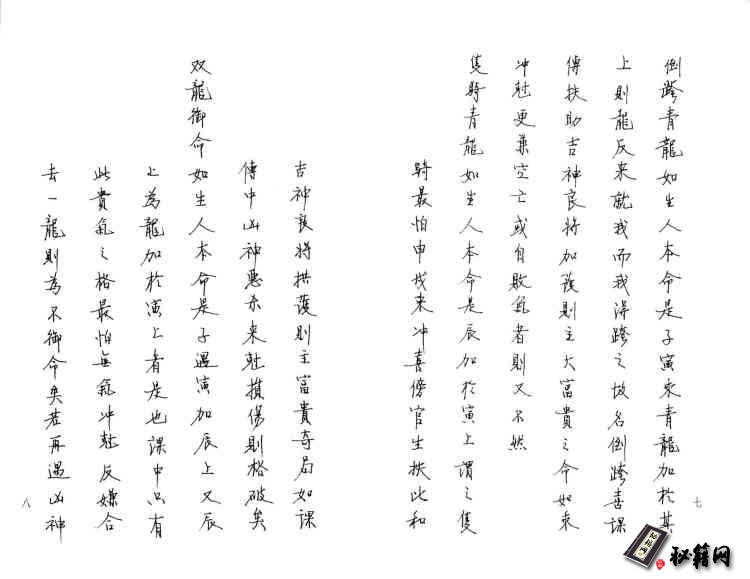 倒跨青龍如生人本命是子寅來青龍加於其
上則龍反来就我而我得跨之故名倒跨喜課
傳扶助吉神良將加護則主大富貴之命如來
冲尅更兼空亡或自敗氣者則又不然
隻騎青龍如生人本命是辰加於寅上謂之隻
騎最怕申戌来冲喜傍官生扶此和
七
吉神良将拱護則主富貴奇局如課
傳中凶神惡杀来尅損傷則格破矣
双龍御命如生人本命是子遇寅加辰上又辰
上為龍加於寅上者是也課中只有
此貴氣之格最怕無氣冲尅反嫌合
去一龍則為不御命矣若再遇凶神
八
秘籍网
秘籍网